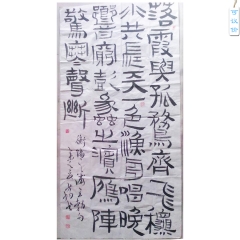 落霞與孤鶩齊飛穐
水共長天一色漁舟唱晚
響窮彭蠡之濱鴈陣
驚寒聲斷
衡陽之浦